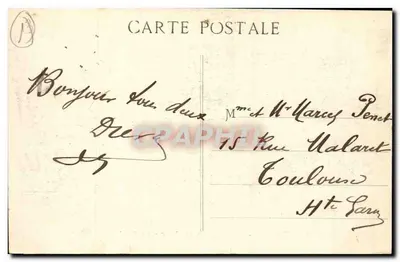 CARTE POSTALE
Bonjour tous deux
Mme et Mr Marcel Penet
15 Rue Malaret
Toulouse
Hte Garne